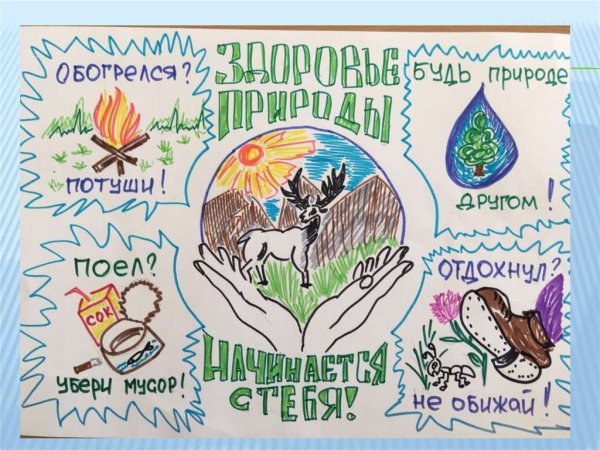 ЗДОРОВЬЕ
ПРИРОДЫ
НАЧИНАЕТСЯ
С ТЕБЯ!
ОБОГРЕЛСЯ?
ПОТУШИ!
БУДЬ ПРИРОДЕ
ДРУГОМ!
ПОЕЛ?
СОК
УБЕРИ МУСОР!
ОТДОХНУЛ?
НЕ ОБИЖАЙ!